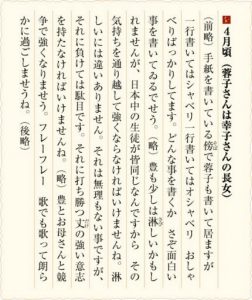 い 4月頃(蓉子さんは幸子さんの長女)
(前略)手紙を書いている傍で蓉子も書いて居ますが
一行書いてはシャベリ一行書いてはオシャベリ おしゃ
べりばっかりしてます。どんな事を書くか さぞ面白い
事を書いてゐるでせう。(略)豊も少しは淋しいかもし
れませんが、日本中の生徒が皆同じなんですから その
気持ちを通り越して強くならなければいけませんね。淋
しいには違いありません。それは無理もない事ですが、
それに負けては駄目です。それに打ち勝つ丈の強い意志
を持たなければいけませんね。(略)豊とお母さんと競
争で強くなりませう。フレーフレー 歌でも歌って朗ら
かに過ごしませうね。(後略)